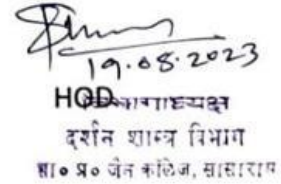 19.08.2023
HOD
विभागाध्यक्ष
दर्शन शास्त्र विभाग
शा० प्र० जैन कॉलेज, सासाराम